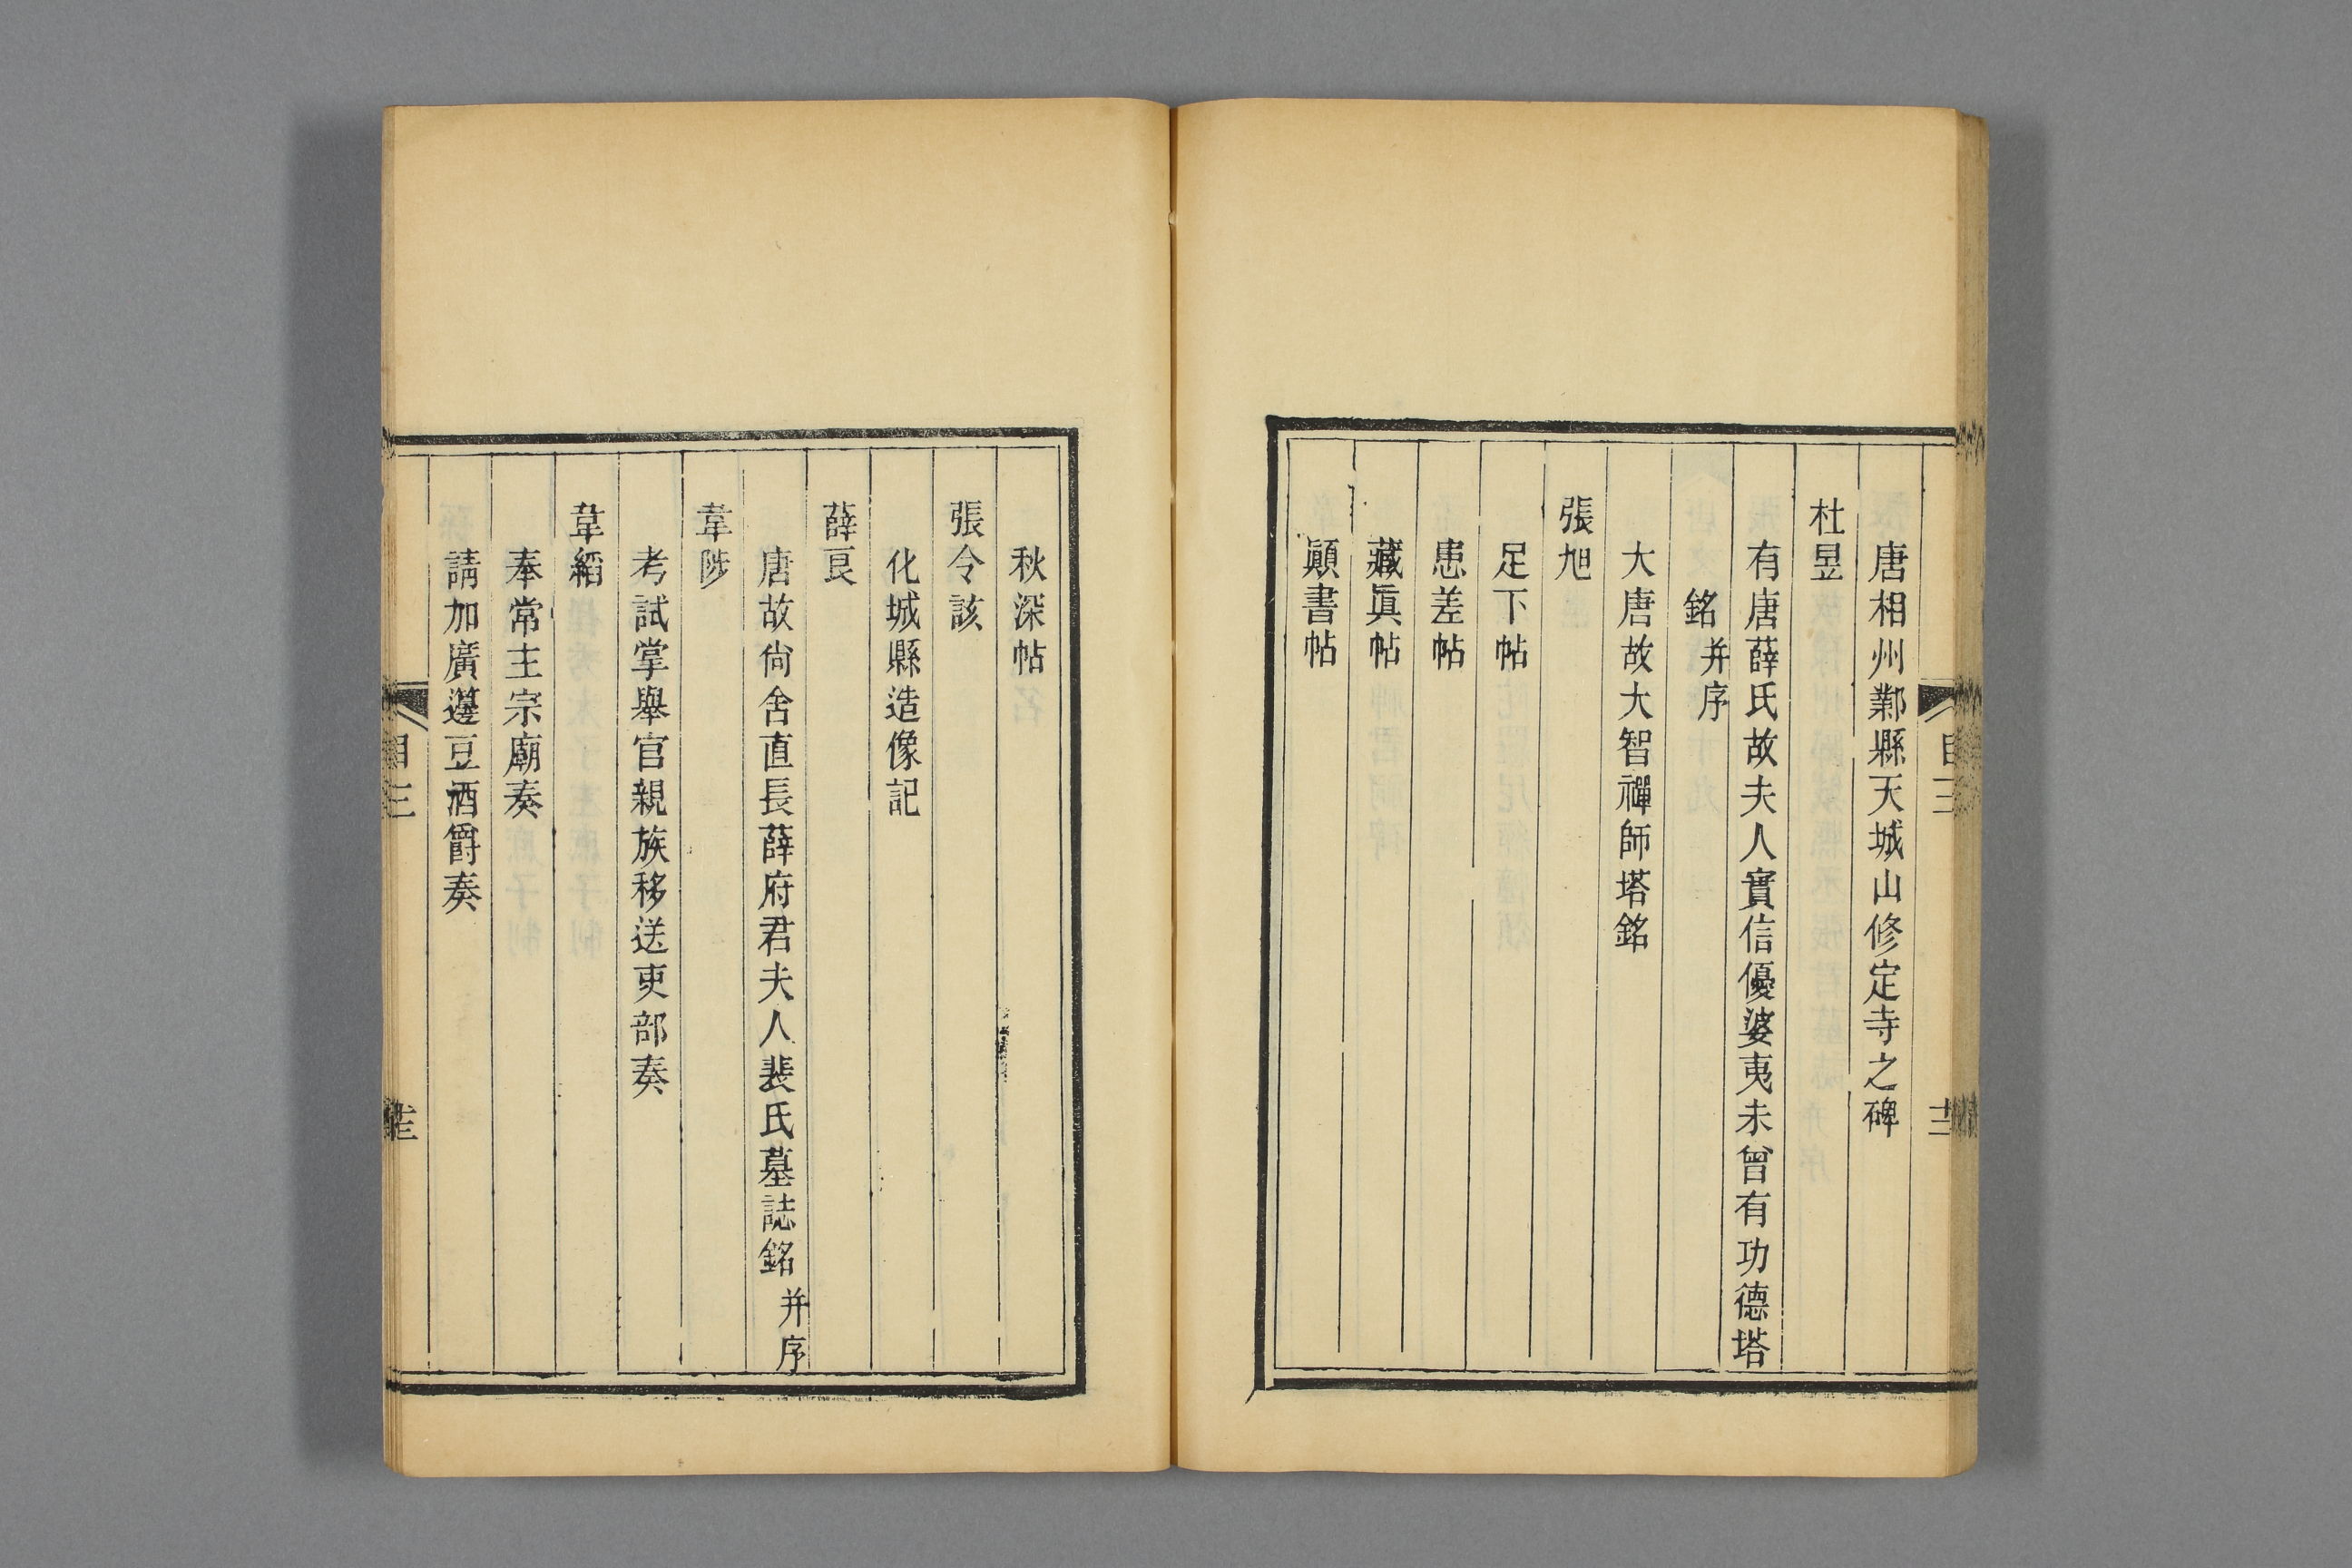 唐相州鄴縣天城山修定寺之碑
杜昱
有唐薛氏故夫人實信優婆夷未曾有功德塔
銘并序
大唐故大智禪師塔銘
張旭
足下帖
患差帖
藏眞帖
顚書帖
秋深帖
張令該
化城縣造像記
薛良
唐故尙舍直長薛府君夫人裴氏墓誌銘并序
韋陟
考試掌舉官親族移送吏部奏
韋縚
奉常主宗廟奏
請加廣籩豆酒爵奏
目三